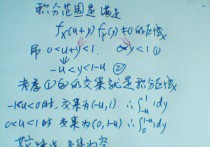 积分范围是满足
f_X(u+y) f_Y(y) ≠0的区域
即 0<u+y<1. 0<y<1 ①
-u<y<1-u ②
考虑①②的交集就是积分区域
-1<u<0时,交集为(-u,1) ∴∫_{-u}^{1} 1dy
0<u<1时 交集为(0,1-u) ∴∫_{0}^{1-u} 1dy